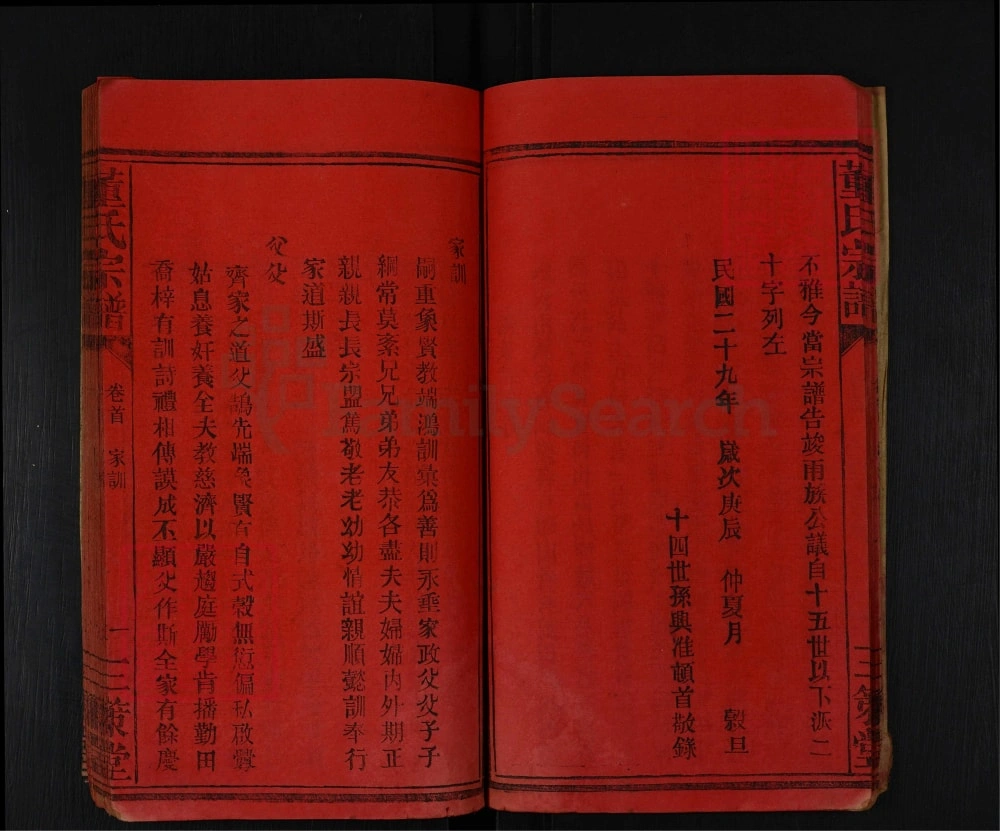 董氏宗譜
三策堂
不雅今當宗譜告竣甬族公議自十五世以下派二
十字列左
民國二十九年 歲次庚辰 仲夏月 穀旦
十四世孫興准頓首敬錄
家訓
嗣重象賢教端鴻訓彙爲善則永垂家政父父子子
綱常莫紊兄兄弟弟友恭各盡夫夫婦婦內外期正
親親長長宗盟篤敬老老幼幼情誼親順懿訓奉行
家道斯盛
父父
齊家之道父鵠先端象賢有自式穀無愆偏私啟釁
姑息養奸養全夫教慈濟以嚴趨庭勵學肯播勤田
喬梓有訓詩禮相傳謨成丕顯父作斯全家有餘慶
董氏宗譜
卷首 家訓
一
三策堂
FamilySearch